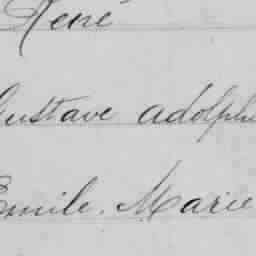 René
Gustave adolphe
Emile. Marie